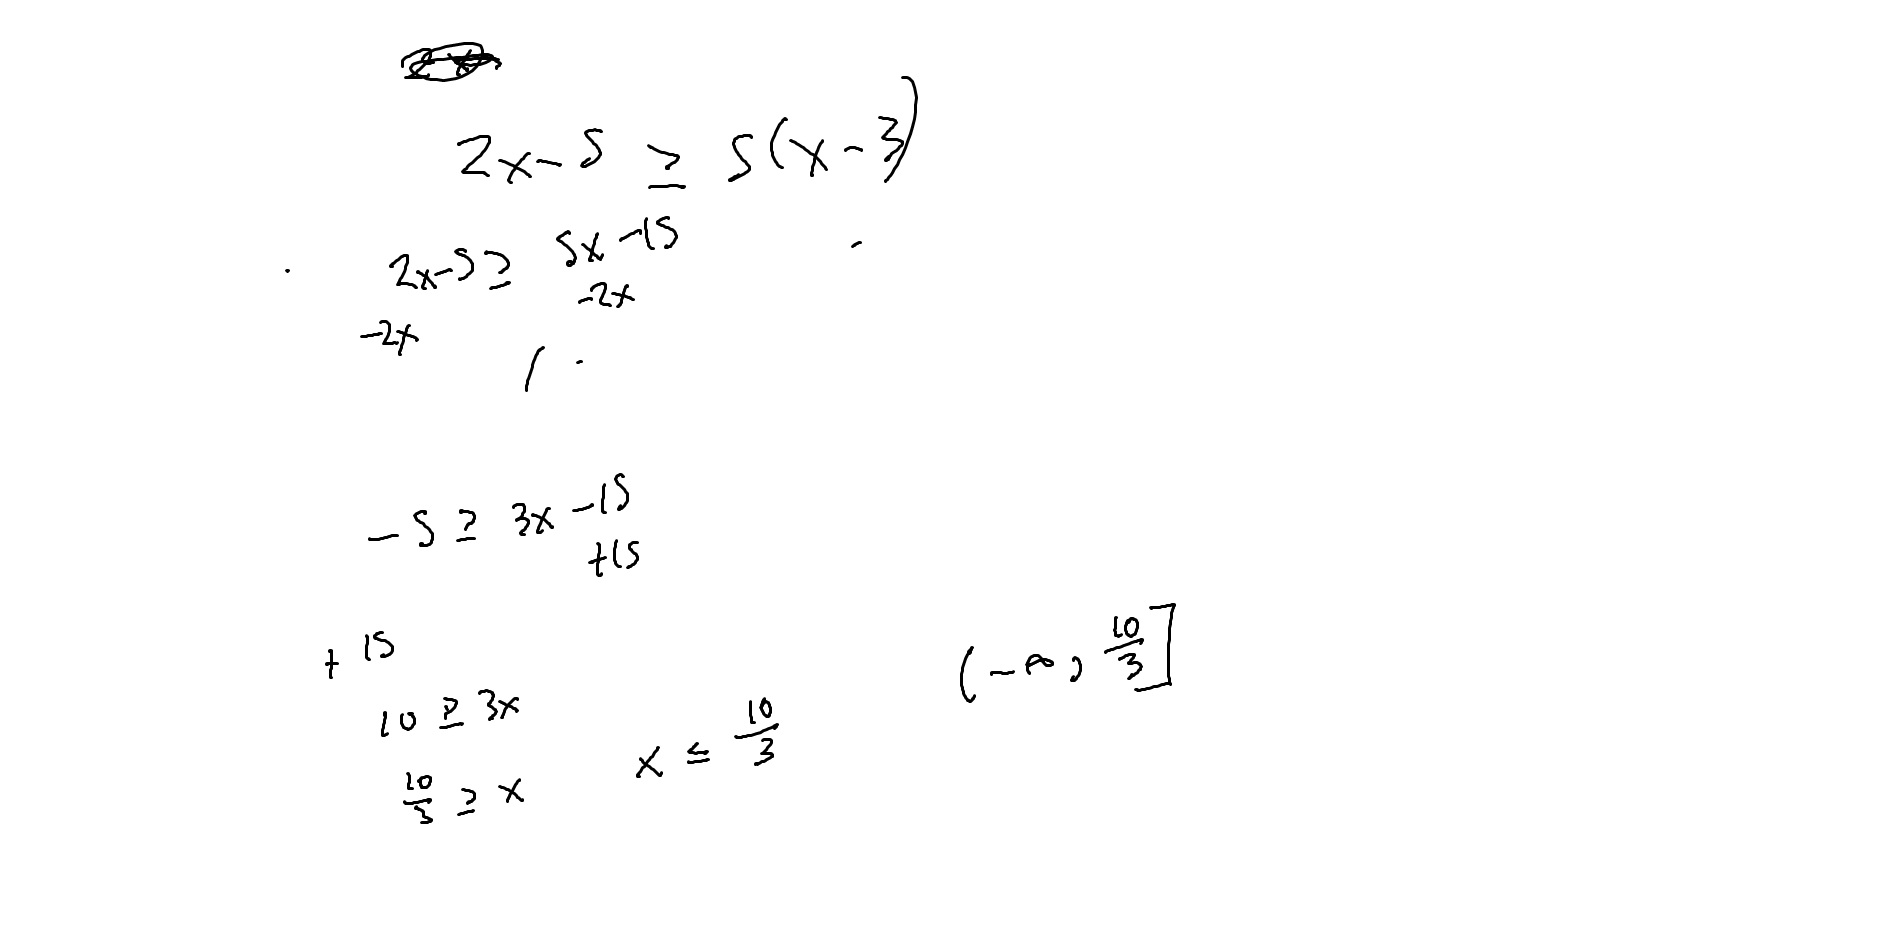 2x - 5 ≥ 5(x - 3)
2x - 5 ≥ 5x - 15
-2x -2x
-5 ≥ 3x - 15
+15
+ 15
10 ≥ 3x
10/3 ≥ x
x ≤ 10/3
(-∞, 10/3]